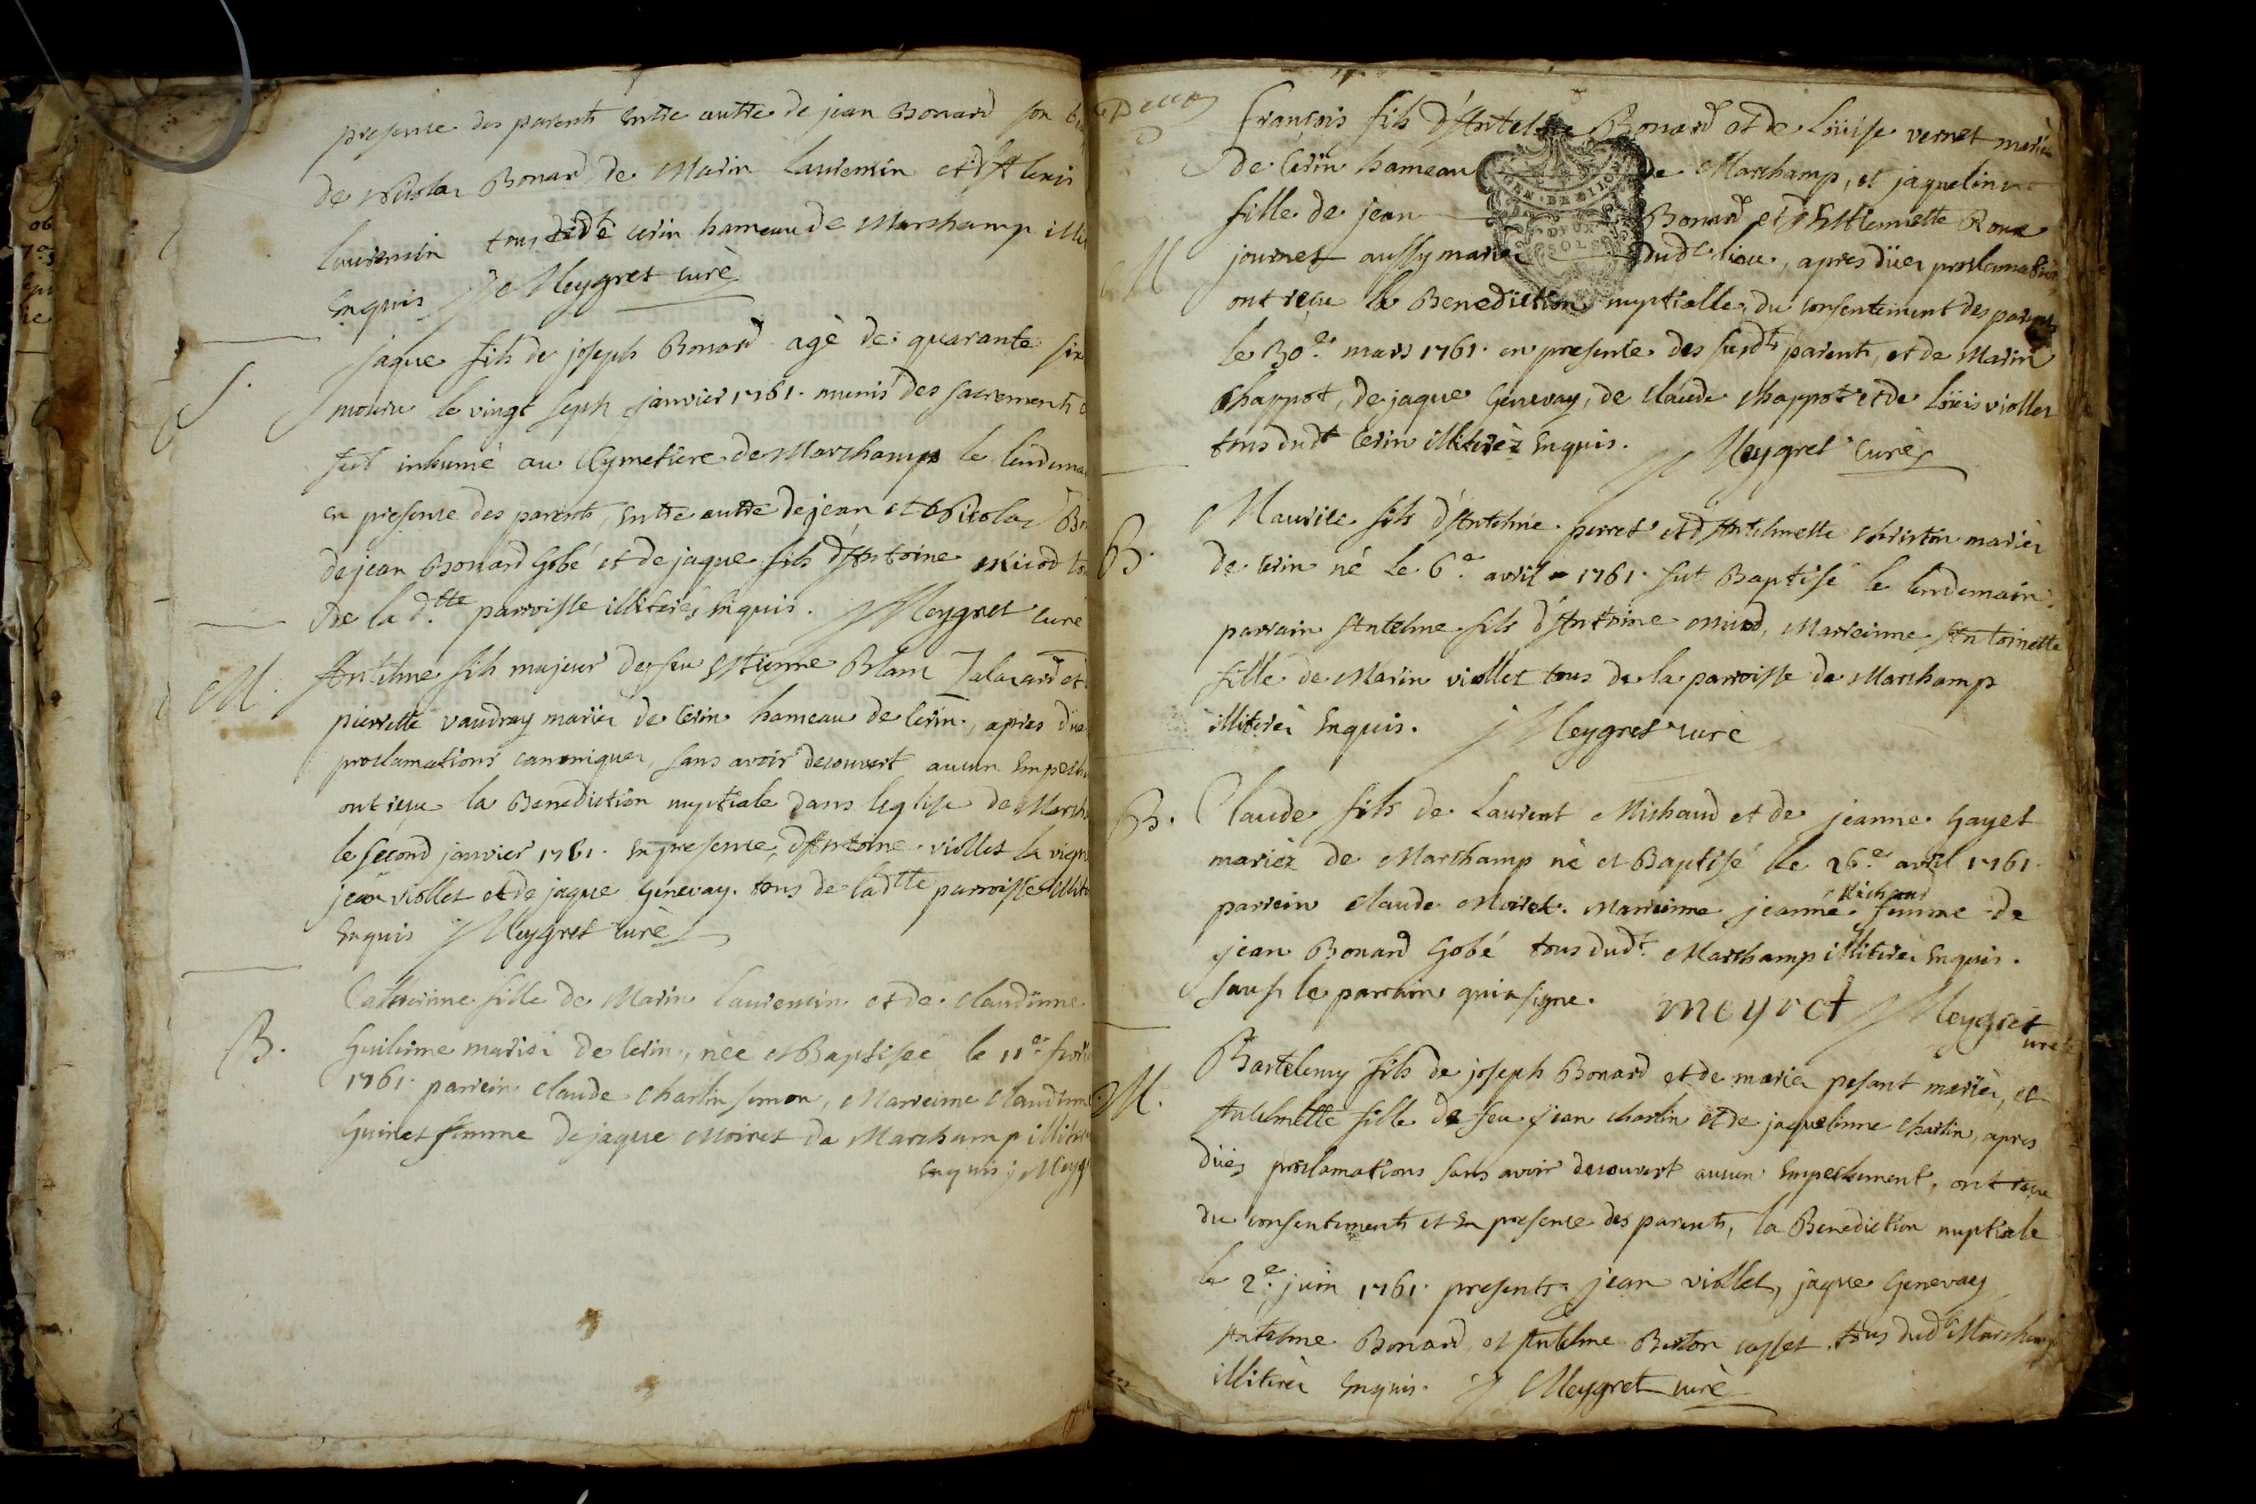 presence des parents entre autre de jean Bonard son
de Nicolas Bonard de Marin Laurensin et d'Alexis
Laurensin tous dudt cerin hameau de Marchamp
enquis J Meygret curè
S.
jaque fils de joseph Bonard agè de quarante six
mouru le vingt sept janvier 1761. munis des sacrements
fut inhumè au Cymetiere de Marchamp le lendema
en presence des parents, entre autre de jean et Nicolas
de jean Bonard Gobé et de jaque fils d'Antoine
de la dtte parroisse illiterés enquis. J Meygret curé
M.
Antelme fils majeur de feu Estienne Blanc et
pierrette vaudray mariéz de Cerin hameau de Cerin, apres dües
proclamations canoniques, sans avoir decouvert aucun Empech
ont reçu la Benediction nuptiale dans leglise de March
le second janvier 1761. en presence, d'Antoine viollet
jean viollet et de jaque Genevay. tous de la dtte parroisse
enquis J Meygret curè
B.
Catherine fille de Marin Laurensin et de Claudinne
Guilerme mariéz de Cerin, nèe et Baptisee le 11e
1761. parrein Claude Charlin simon, Marreinne Claudinne
Guinet femme de jaque Moiret de Marchamp
enquis J Meyg
François fils d'Antelme Bonard et de Loüise vernet mariéz
de Cerin hameau de Marchamp, et jaquelinne
GEN. DE
DEUX
SOLS
fille de jean Bonard et d'Estiennette Roux
M
journet aussy mariéz dudt lieu, apres dües proclamations
ont reçu la Benediction nuptialle, du consentement des parents
le 30e mars 1761. en presence des susdts parents, et de Marin
Chappot, de jaque Genevay, de Claude Chappot et de Loüis viollet
tous dudt Cerin illiteréz enquis. J Meygret Curè
B.
Maurice fils d'Antelme perret et d'Antelmette Christin mariéz
de Cerin né le 6e avril 1761. fut Baptisé le lendemain.
parrain Antelme fils d'Antoine, Marreinne Antoinette
fille de Marin viollet tous de la parroisse de Marchamp
illiteréz enquis. J Meygret curè
B.
Claude fils de Laurent Michaud et de jeanne Gayet
mariéz de Marchamp nè et Baptisé le 26e avril 1761.
parrein Claude Moiret. Marreinne jeanne Michaud femme de
jean Bonard Gobé tous dudt Marchamp illiteréz enquis.
sauf le parrain qui a signe. meyret J Meygret
curè
M.
Bartelemy fils de joseph Bonard et de marie pesant mariéz, et
Antelmette fille de feu jean Charlin et de jaquelinne Charlin, apres
dües proclamations sans avoir decouvert aucun Empechement, ont reçu
du consentement et en presence des parents, la Benediction nuptiale
le 2e. juin 1761. presents jean viollet, jaque Genevay
Antelme Bonard, et Antelme Berton cosset tous dudt Marchamp
illiteréz enquis. J Meygret curè